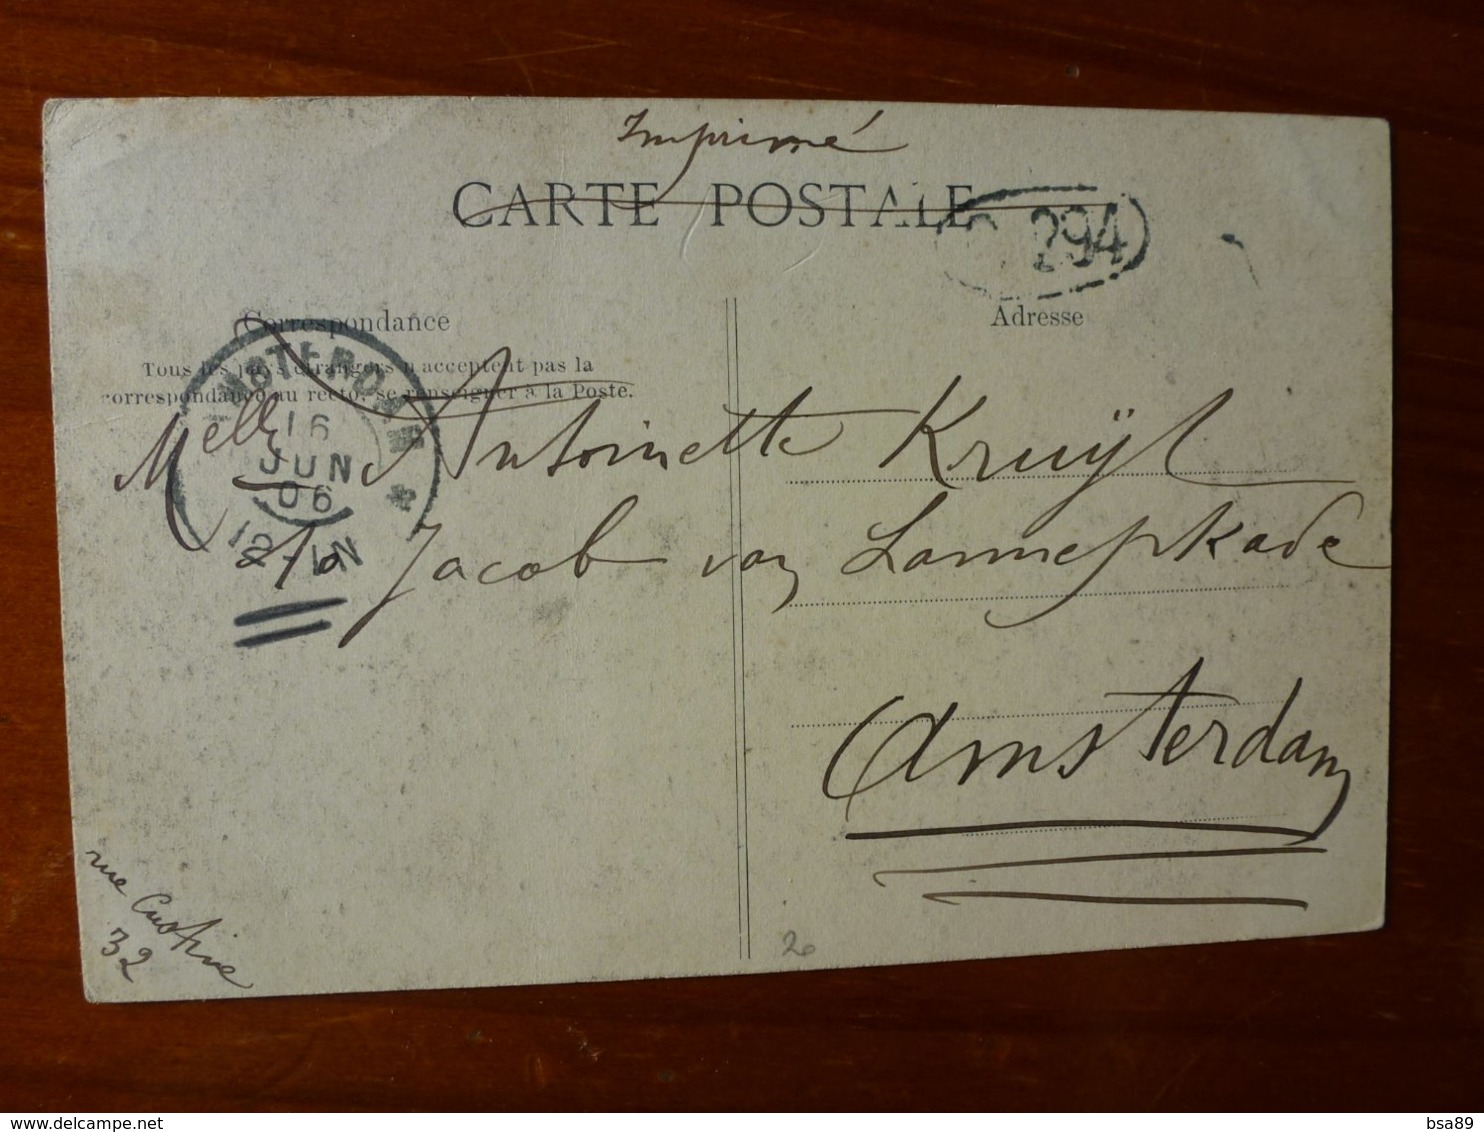 Imprimé
CARTE POSTALE
294
Correspondance
Adresse
Tous les pays étrangers n'acceptent pas la
correspondance au recto, se renseigner à la Poste.
AMSTERDAM
16
JUN
06
12-1N
Melle Antoinette Kruÿt
Jacob van Lennepkade
Amsterdam
rue Custine
32
20
delcampe.net
bsa89